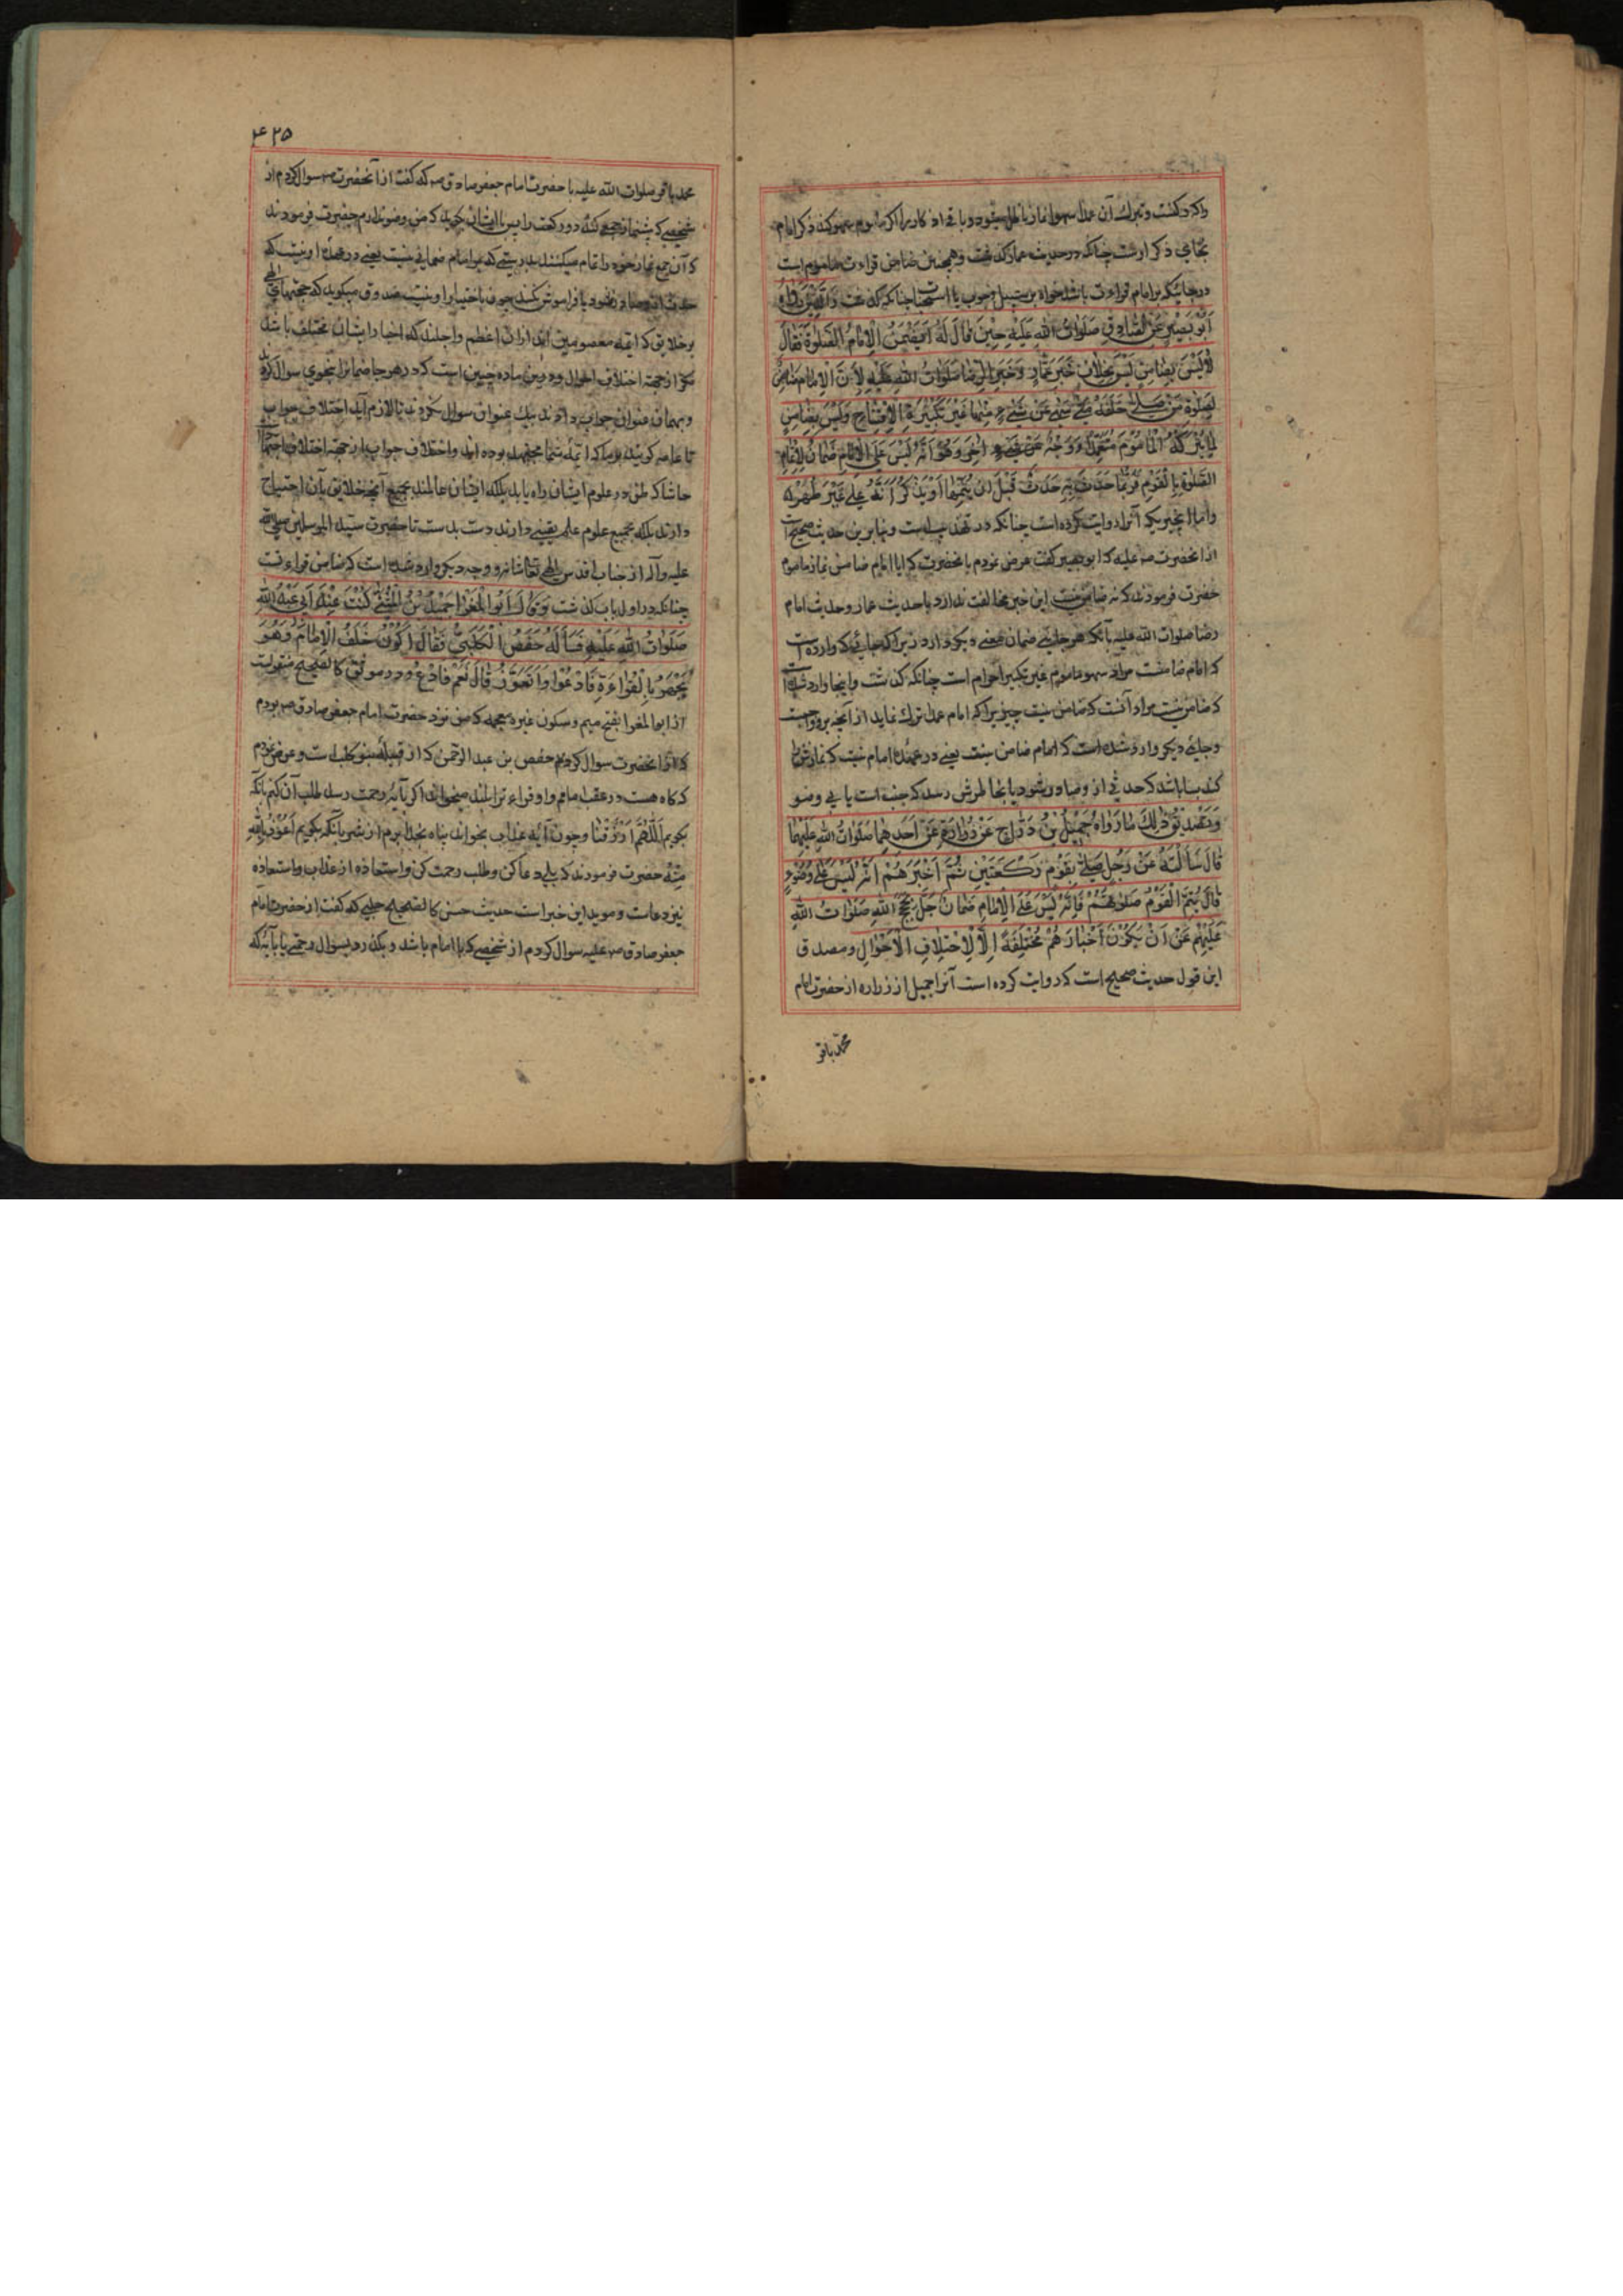 بجاي ذكر اوست چنانكه در حديث عمار گذشت وهمچنين ضامن قراءت ماموم است
در جائيكه بر امام قراءت باشد خواه بر سبيل وجوب يا استحبابا چنانكه گذشت وَالَّذي رَوَاهُ
اَبُو بَصِيْرٍ عَنِ الصَّادِقِ صَلَوَاتُ اللهِ عَلَيْهِ حِيْنَ قَالَ لَهُ اَيَضْمَنُ الْاِمَامُ الصَّلوٰةَ فَقَالَ
لَا لَيْسَ بِضَامِنٍ لَيْسَ بِخِلَافِ خَبَرِ عَمَّارٍ وَخَبَرِ الرِّضَا صَلَوَاتُ اللهِ عَلَيْهِ لِاَنَّ الْاِمَامَ ضَامِنٌ
لِصَلوٰةِ مَنْ صَلّٰى خَلْفَهُ مَتٰى سَهٰى عَنْ شَيْءٍ مِنْهَا غَيْرَ تَكْبِيْرَةِ الْاِفْتِتَاحِ وَلَيْسَ بِضَامِنٍ
لِمَا يَتْرُكُهُ الْمَأْمُوْمُ مُتَعَمِّدًا وَوَجْهٌ اٰخَرُ وَهُوَ اَنَّهُ لَيْسَ عَلَى الْاِمَامِ ضَمَانٌ لِاِتْمَامِ
الصَّلوٰةِ بِالْقَوْمِ فَرُبَّمَا حَدَثَ بِهِ حَدَثٌ قَبْلَ اَنْ يُتِمَّهَا اَوْ يَذْكُرُ اَنَّهُ عَلٰى غَيْرِ طُهْرٍ
واما خبريكه آنرا روايت كرده است چنانكه در تهذيب است وبنابرين حديث صحيح است
از آنحضرت صه عليه كه ابو بصير گفت عرض نمودم بآنحضرت كه ايا امام ضامن نماز ماموم
حضرت فرمودند كه نه ضامن نيست اين خبر مخالفت ندارد با حديث عمار وحديث امام
رضا صلوات الله عليه بآنكه هر جائي ضمان معني ديگر دارد زيرا كه جائي كه وارده است
كه امام ضامنست مراد سهو ماموم غير تكبير احرام است چنانكه گذشت واينجا وارد شده است
كه ضامن نيست مراد آنست كه ضامن نيست چيزيرا كه امام عمدا ترك نمايد از آنچه برو واجبست
وجائي ديگر وارد شده است كه امام ضامن نيست يعني در عهدهٔ امام نيست كه نمازش را
كند بسا باشد كه حدثي از او صادر شود يا بخاطرش رسد كه جنب است يا بي وضو
وَتَصْدِيْقُ ذٰلِكَ مَا رَوَاهُ جَمِيْلُ بْنُ دَرَّاجٍ عَنْ زُرَارَةَ عَنْ اَحَدِهِمَا صَلَوَاتُ اللهِ عَلَيْهِمَا
قَالَ سَاَلْتُهُ عَنْ رَجُلٍ صَلّٰى بِقَوْمٍ رَكْعَتَيْنِ ثُمَّ اَخْبَرَهُمْ اَنَّهُ لَيْسَ عَلٰى وُضُوْءٍ
قَالَ يُتِمُّ الْقَوْمُ صَلٰوتَهُمْ فَاِنَّهُ لَيْسَ عَلَى الْاِمَامِ ضَمَانٌ جَلَّ حُجَجُ اللهِ صَلَوَاتُ اللهِ
عَلَيْهِمْ عَنْ اَنْ يَكُوْنَ اَخْبَارُهُمْ مُخْتَلِفَةً اِلَّا لِاخْتِلَافِ الْاَحْوَالِ ومصدق
اين قول حديث صحيح است كه روايت كرده است آنرا جميل از زراره از حضرت امام
محمد باقر
٤٢٥
محمد باقر صلوات الله عليه يا حضرت امام جعفر صادق صه كه گفت از آنحضرت صه سوال كردم از
شخصي كه پيشنماز جمعي كند دو ركعت را پس با ايشان گويد كه من وضو ندارم حضرت فرمودند
كه آن جمع نماز خود را تمام ميكنند بدرستي كه بر امام ضماني نيست يعني در عهدهٔ او نيست كه
حدث از او صادر نشود يا فراموش نكند چون باختيار او نيست صدوق ميگويد كه حجتهاي الهي
بر خلايق كه ائمه معصومين اند ازان اعظم واجلند كه اخبار ايشان مختلف باشد
مگر از جهة اختلاف احوال ودرين ماده چنين است كه در هر جا ضمانرا بنحوي سوال كرده
وبهمان عنوان جواب دادند بيك عنوان سوال نكردند تا لازم آيد اختلاف جواب
تا عامه گويند بر ما كه ائمهٔ شما مجتهد بوده اند واختلاف جواب از جهة اختلاف اجتهاد
حاشا كه ظن در علوم ايشان راه يابد بلكه ايشان عالمند بجميع آنچه خلايق بآن احتياج
دارند بلكه بجميع علوم علم يقيني دارند دست بدست تا حضرت سيد المرسلين صلي الله
عليه وآله از جناب اقدس الهي تعالى شانه ووجه ديگر وارد شده است كه ضامن قراءتست
چنانكه در اول باب گذشت وَقَالَ اَبُو الْمَغْرَا حَمِيْدُ بْنُ الْمُثَنّٰى كُنْتُ عِنْدَ اَبِيْ عَبْدِ اللهِ
صَلَوَاتُ اللهِ عَلَيْهِ فَسَأَلَهُ حَفْصٌ الْكَلْبِيُّ فَقَالَ اَكُوْنُ خَلْفَ الْاِمَامِ وَهُوَ
يَجْهَرُ بِالْقِرَاءَةِ فَاَدْعُوْا وَاَتَعَوَّذُ قَالَ نَعَمْ فَادْعُ ودر موثق كالصحيح منقولست
از ابو المغرا بفتح ميم وسكون غين معجمه كه من نزد حضرت امام جعفر صادق صه بودم
كه از آنحضرت سوال كرد حفص بن عبد الرحمن كه از قبيلهٔ بنو كلب است وعرض نمودم
كه گاه هست در عقب امامم واو قراءت را بلند ميخواند اگر بآيه رحمت رسد طلب آن كنم بآنكه
بگويم اَللّٰهُمَّ ارْزُقْنَا وچون آيه عذاب بخواند پناه بخدا برم از شر بآنكه بگويم اَعُوْذُ بِاللهِ
مِنْهُ حضرت فرمودند كه بلي دعا كن وطلب رحمت كن واستعاذه از عذاب واستعاذه
نيز دعاست ومويد اين خبر است حديث حسن كالصحيح حلبي كه گفت از حضرت امام
جعفر صادق صه عليه سوال كردم از شخصي كه با امام باشد وبگذرد بسوال رحمتي يا بآيهٔ كه